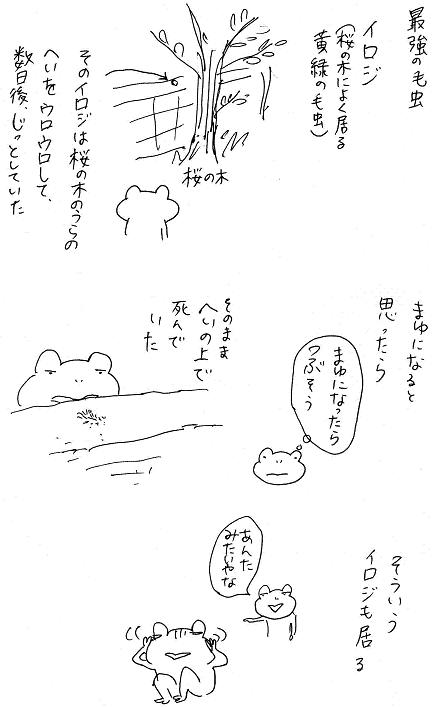 最強の毛虫
イロジ
(桜の木によく居る
黄緑の毛虫)
桜の木
そのイロジは桜の木のうらの
へいをウロウロして、
数日後、じっとしていた
まゆになると
思ったら
まゆになったら
つぶそう
そのまま
へいの上で
死んで
いた
そういう
イロジも居る
あんた
みたいやな